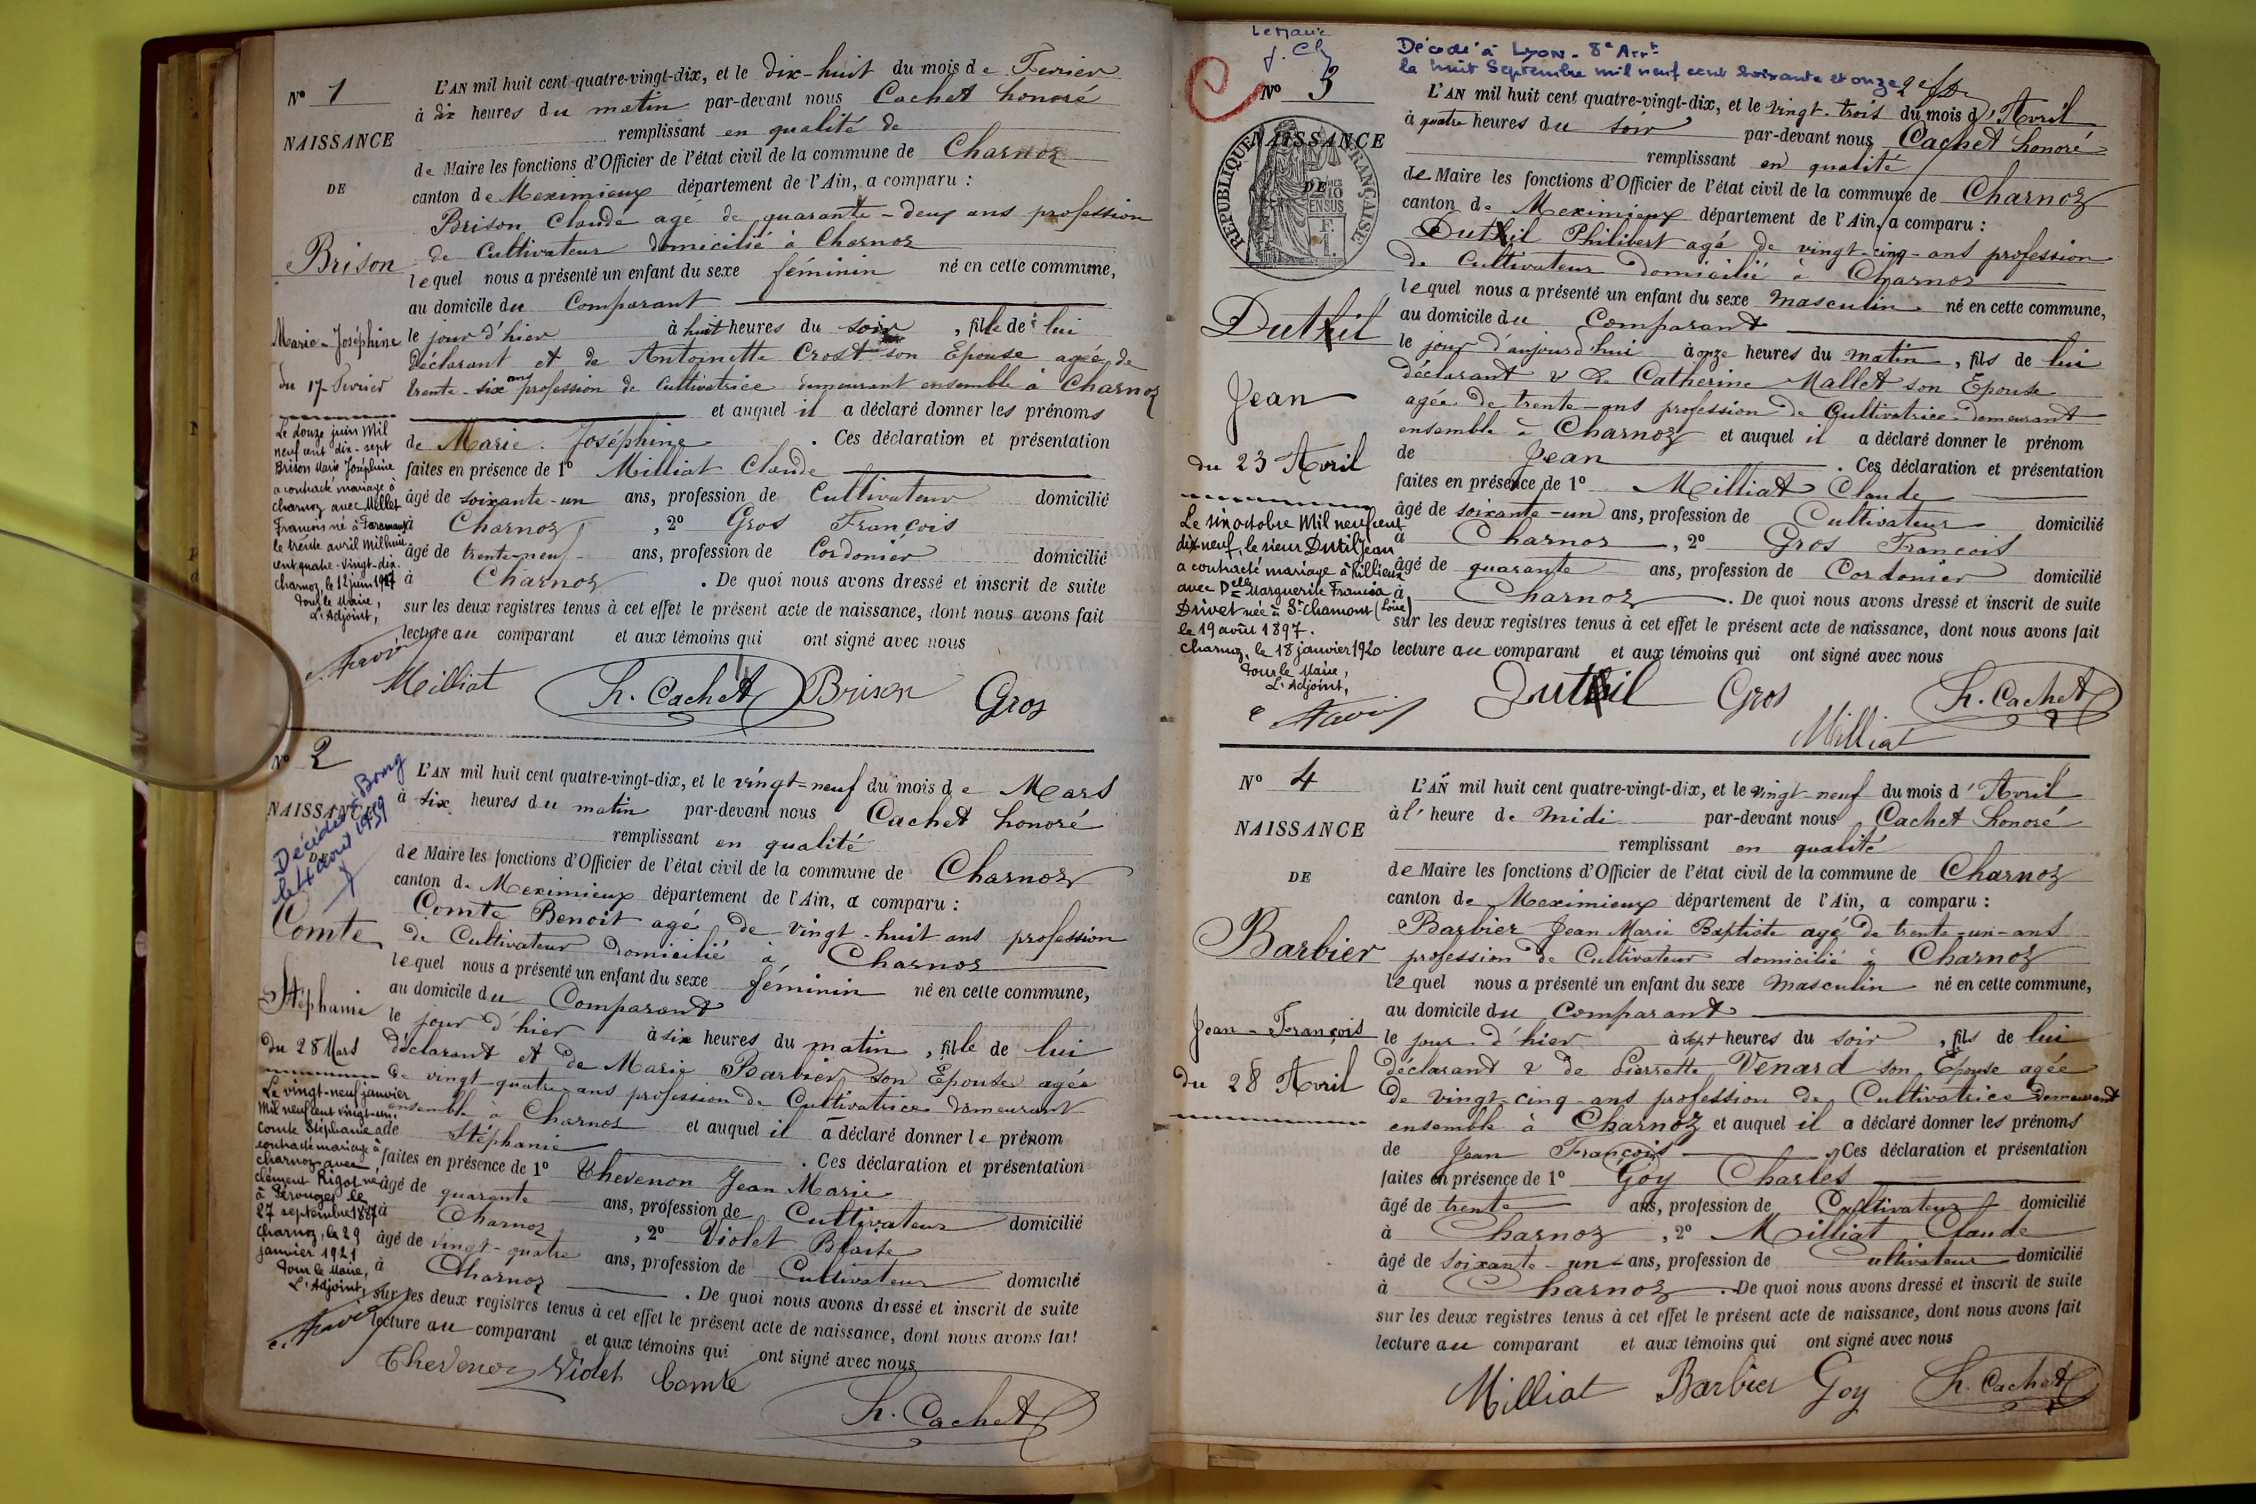 N° 1
NAISSANCE
DE
Brison
Marie-Joséphine
du 17 Février
Le douze juin Mil
neuf cent dix-sept
Brison Marie Joséphine
a contracté mariage à
Charnoz avec Mellet
François né à Faramans
le trente avril Mil huit
cent quatre-vingt-dix.
Charnoz, le 12 juin 1917
Pour le Maire,
L'Adjoint,
L'AN mil huit cent quatre-vingt-dix, et le dix-huit du mois de Fevrier
à dix heures du matin par-devant nous Cachet honoré
remplissant en qualité de
de Maire les fonctions d'Officier de l'état civil de la commune de Charnoz
canton de Meximieux département de l'Ain, a comparu :
Brison Claude agé de quarante-deux ans profession
de Cultivateur domicilié à Charnoz
lequel nous a présenté un enfant du sexe féminin né en cette commune,
au domicile du Comparant
le jour d'hier à huit heures du soir, fille de lui
déclarant et de Antoinette Crost son Epouse agée de
trente-six ans profession de Cultivatrice demeurant ensemble à Charnoz
et auquel il a déclaré donner les prénoms
de Marie-Joséphine. Ces déclaration et présentation
faites en présence de 1° Milliat Claude
âgé de soixante-un ans, profession de Cultivateur domicilié
à Charnoz, 2° Gros François
âgé de trente-neuf ans, profession de Cordonier domicilié
à Charnoz. De quoi nous avons dressé et inscrit de suite
sur les deux registres tenus à cet effet le présent acte de naissance, dont nous avons fait
lecture au comparant et aux témoins qui ont signé avec nous
Milliat H. Cachet Brison Gros
N° 2
Décédée à Bourg
le 4 aout 1959
NAISSANCE
DE
Comte
Stéphanie
du 28 Mars
Le vingt-neuf janvier
Mil neuf cent vingt-un,
Comte Stéphanie a
contracté mariage à
Charnoz avec
Clément Rigot né
à Pérouges le
27 septembre 1887
Charnoz, le 29
janvier 1921
Pour le Maire,
L'Adjoint,
L'AN mil huit cent quatre-vingt-dix, et le vingt-neuf du mois de Mars
à six heures du matin par-devant nous Cachet honoré
remplissant en qualité
de Maire les fonctions d'Officier de l'état civil de la commune de Charnoz
canton de Meximieux département de l'Ain, a comparu :
Comte Benoit agé de vingt-huit ans profession
de Cultivateur domicilié à Charnoz
lequel nous a présenté un enfant du sexe féminin né en cette commune,
au domicile du Comparant
le jour d'hier à six heures du matin, fille de lui
déclarant et de Marie Barbier son Epouse agée
de vingt-quatre ans profession de Cultivatrice demeurant
ensemble à Charnoz et auquel il a déclaré donner le prénom
de Stéphanie. Ces déclaration et présentation
faites en présence de 1° Thevenon Jean Marie
âgé de quarante ans, profession de Cultivateur domicilié
à Charnoz, 2° Violet Blaise
âgé de vingt-quatre ans, profession de Cultivateur domicilié
à Charnoz. De quoi nous avons dressé et inscrit de suite
sur les deux registres tenus à cet effet le présent acte de naissance, dont nous avons fait
lecture au comparant et aux témoins qui ont signé avec nous
Thevenon Violet Comte
H. Cachet
Le Maire
Décédé à Lyon - 8e Arrt
le huit Septembre mil neuf cent soixante et onze
N° 3
NAISSANCE
DE
RÉPUBLIQUE FRANÇAISE
Duthil
Jean
du 23 Avril
Le six octobre Mil neuf cent
dix-neuf, le sieur Dutil Jean
a contracté mariage à Rillieux
avec Delle Marguerite Francisa
Drivet née à St Chamond (Loire)
le 19 août 1897.
Charnoz, le 18 janvier 1920
Pour le Maire,
L'Adjoint,
L'AN mil huit cent quatre-vingt-dix, et le vingt-trois du mois d'Avril
à quatre heures du soir par-devant nous Cachet honoré
remplissant en qualité
de Maire les fonctions d'Officier de l'état civil de la commune de Charnoz
canton de Meximieux département de l'Ain, a comparu :
Duthil Philibert agé de vingt-cinq-ans profession
de Cultivateur domicilié à Charnoz
lequel nous a présenté un enfant du sexe masculin né en cette commune,
au domicile du Comparant
le jour d'aujourd'hui à onze heures du matin, fils de lui
déclarant & de Catherine Mallet son Epouse
agée de trente-ans profession de Cultivatrice demeurant
ensemble à Charnoz et auquel il a déclaré donner le prénom
de Jean. Ces déclaration et présentation
faites en présence de 1° Milliat Claude
âgé de soixante-un ans, profession de Cultivateur domicilié
à Charnoz, 2° Gros François
âgé de quarante ans, profession de Cordonier domicilié
à Charnoz. De quoi nous avons dressé et inscrit de suite
sur les deux registres tenus à cet effet le présent acte de naissance, dont nous avons fait
lecture au comparant et aux témoins qui ont signé avec nous
Duthil Gros H. Cachet
Milliat
N° 4
NAISSANCE
DE
Barbier
Jean-François
du 28 Avril
L'AN mil huit cent quatre-vingt-dix, et le vingt-neuf du mois d'Avril
à l'heure de midi par-devant nous Cachet honoré
remplissant en qualité
de Maire les fonctions d'Officier de l'état civil de la commune de Charnoz
canton de Meximieux département de l'Ain, a comparu :
Barbier Jean Marie Baptiste agé de trente-un-ans
profession de Cultivateur domicilié à Charnoz
lequel nous a présenté un enfant du sexe masculin né en cette commune,
au domicile du Comparant
le jour d'hier à sept heures du soir, fils de lui
déclarant & de Pierrette Venard son Epouse agée
de vingt-cinq-ans profession de Cultivatrice demeurant
ensemble à Charnoz et auquel il a déclaré donner les prénoms
de Jean François. Ces déclaration et présentation
faites en présence de 1° Goy Charles
âgé de trente ans, profession de Cultivateur domicilié
à Charnoz, 2° Milliat Claude
âgé de soixante-un-ans, profession de Cultivateur domicilié
à Charnoz. De quoi nous avons dressé et inscrit de suite
sur les deux registres tenus à cet effet le présent acte de naissance, dont nous avons fait
lecture au comparant et aux témoins qui ont signé avec nous
Milliat Barbier Goy H. Cachet